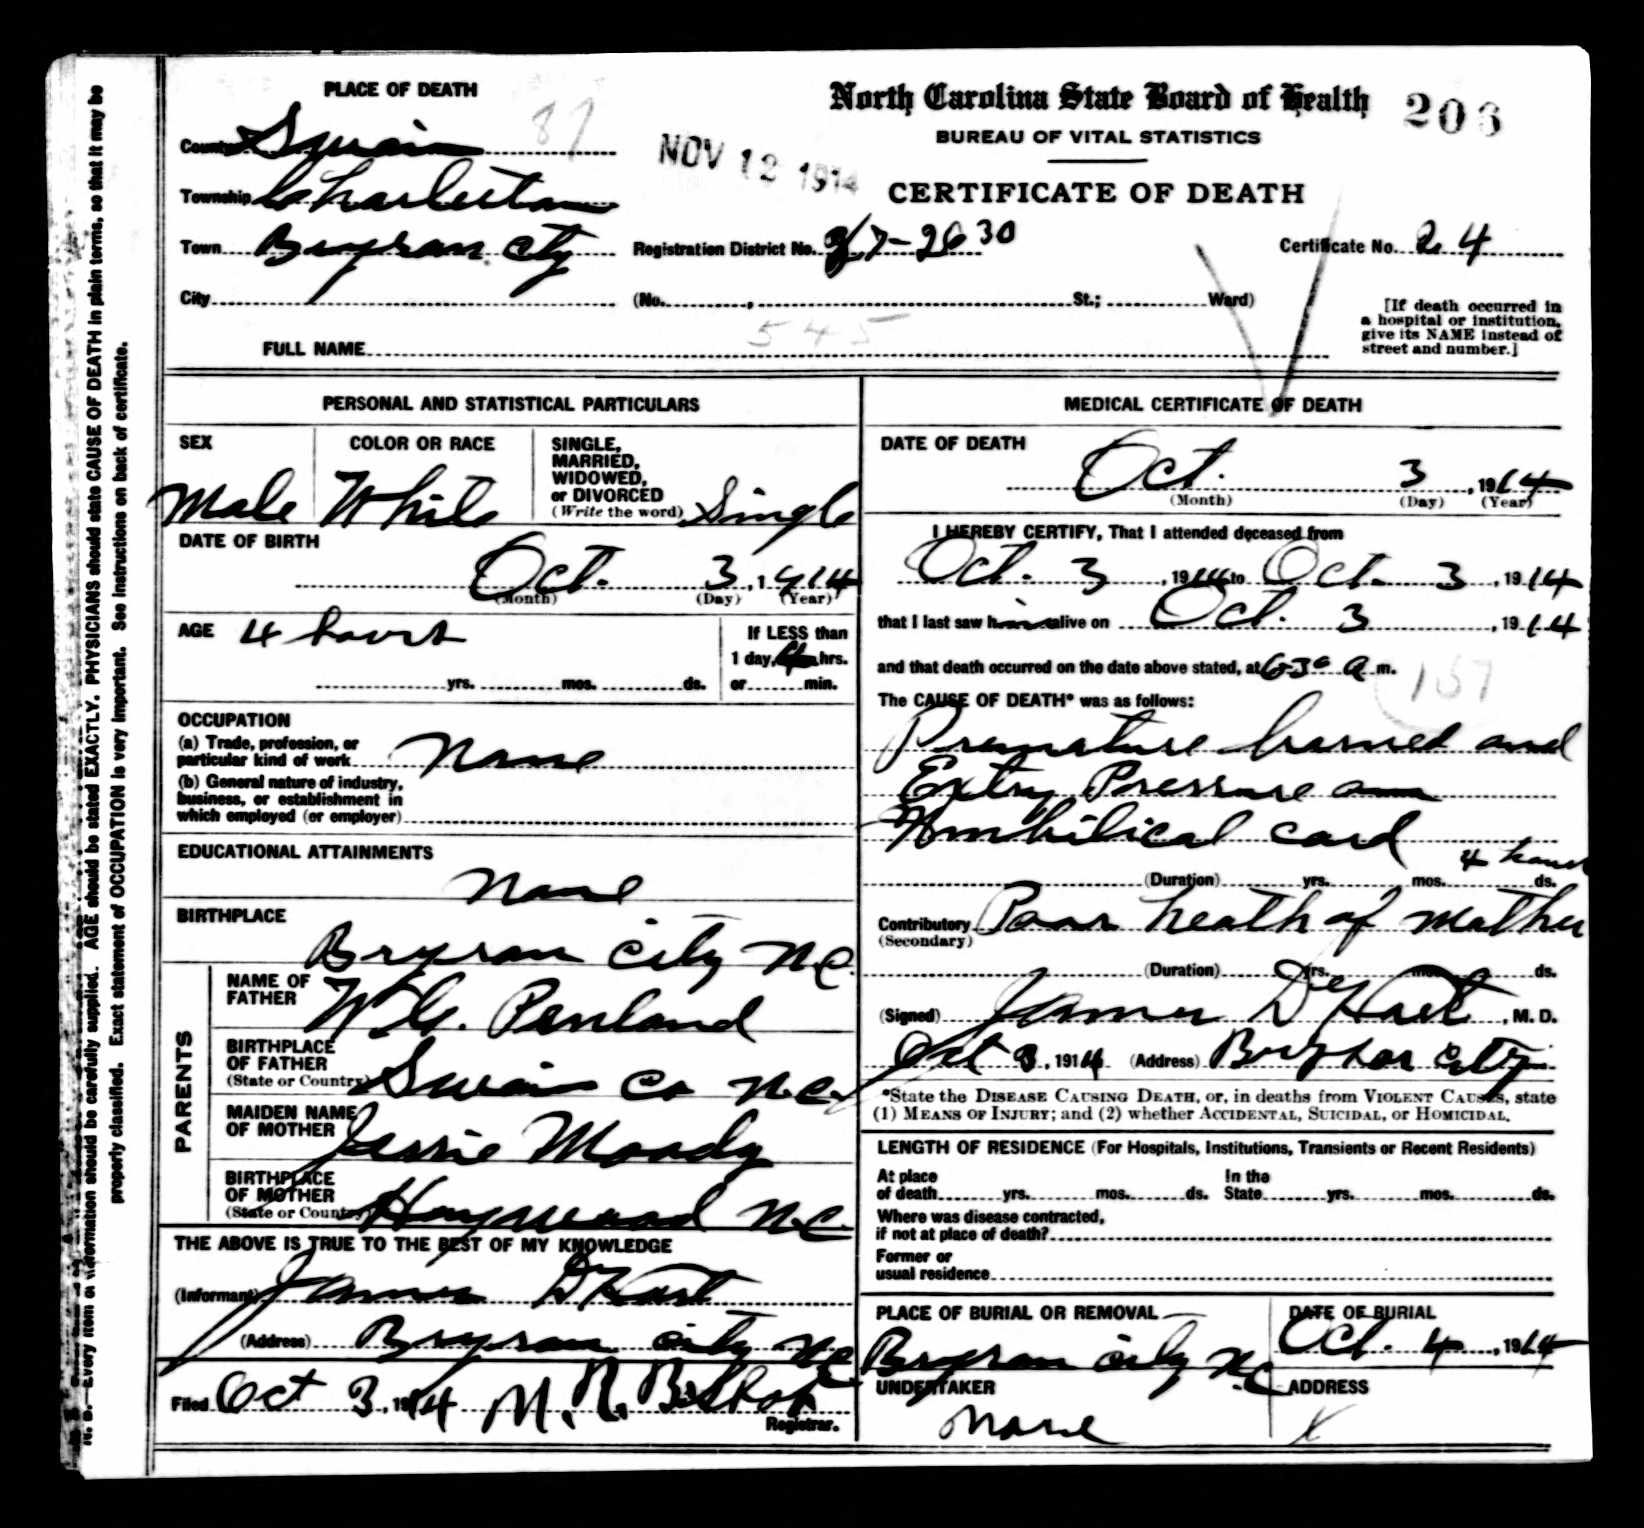 PLACE OF DEATH
North Carolina State Board of Health 206
BUREAU OF VITAL STATISTICS
87
NOV 12 1914
CERTIFICATE OF DEATH
County Swain
Township Charleston
Town Bryson city
Registration District No. 87-26 30
Certificate No. 24
City
(No. , St.; Ward)
[If death occurred in
a hospital or institution,
give its NAME instead of
street and number.]
545
FULL NAME
PERSONAL AND STATISTICAL PARTICULARS
SEX
Male
COLOR OR RACE
White
SINGLE,
MARRIED,
WIDOWED,
or DIVORCED
(Write the word) Single
DATE OF BIRTH
Oct. 3, 1914
(Month) (Day) (Year)
AGE 4 hours
yrs. mos. ds.
If LESS than
1 day, 4 hrs.
or min.
OCCUPATION
(a) Trade, profession, or
particular kind of work None
(b) General nature of industry,
business, or establishment in
which employed (or employer)
EDUCATIONAL ATTAINMENTS
None
BIRTHPLACE
Bryson city N.C.
PARENTS
NAME OF
FATHER W.G. Penland
BIRTHPLACE
OF FATHER
(State or Country) Swain Co N.C.
MAIDEN NAME
OF MOTHER Jessie Moody
BIRTHPLACE
OF MOTHER
(State or Country) Haywood N.C.
THE ABOVE IS TRUE TO THE BEST OF MY KNOWLEDGE
(Informant) James DeHart
(Address) Bryson city N.C.
Filed Oct 3, 1914 M. R. Bishop
Registrar.
MEDICAL CERTIFICATE OF DEATH
DATE OF DEATH
Oct. 3, 1914
(Month) (Day) (Year)
I HEREBY CERTIFY, That I attended deceased from
Oct. 3, 1914 to Oct. 3, 1914
that I last saw him alive on Oct. 3, 1914
and that death occurred on the date above stated, at 630 a m.
157
The CAUSE OF DEATH* was as follows:
Premature borned and
Extry Pressure on
Umbilical cord
4 hours
(Duration) yrs. mos. ds.
Contributory Poor heath of mother
(Secondary)
(Duration) yrs. mos. ds.
(Signed) James DeHart, M. D.
Oct 3, 1914 (Address) Bryson city
*State the DISEASE CAUSING DEATH, or, in deaths from VIOLENT CAUSES, state
(1) MEANS OF INJURY; and (2) whether ACCIDENTAL, SUICIDAL, or HOMICIDAL.
LENGTH OF RESIDENCE (For Hospitals, Institutions, Transients or Recent Residents)
At place
of death yrs. mos. ds.
In the
State yrs. mos. ds.
Where was disease contracted,
if not at place of death?
Former or
usual residence
PLACE OF BURIAL OR REMOVAL
Bryson city N.C.
DATE OF BURIAL
Oct. 4, 1914
UNDERTAKER
None
ADDRESS
X
N. B.—Every item of information should be carefully supplied. AGE should be stated EXACTLY. PHYSICIANS should state CAUSE OF DEATH in plain terms, so that it may be
properly classified. Exact statement of OCCUPATION is very important. See instructions on back of certificate.